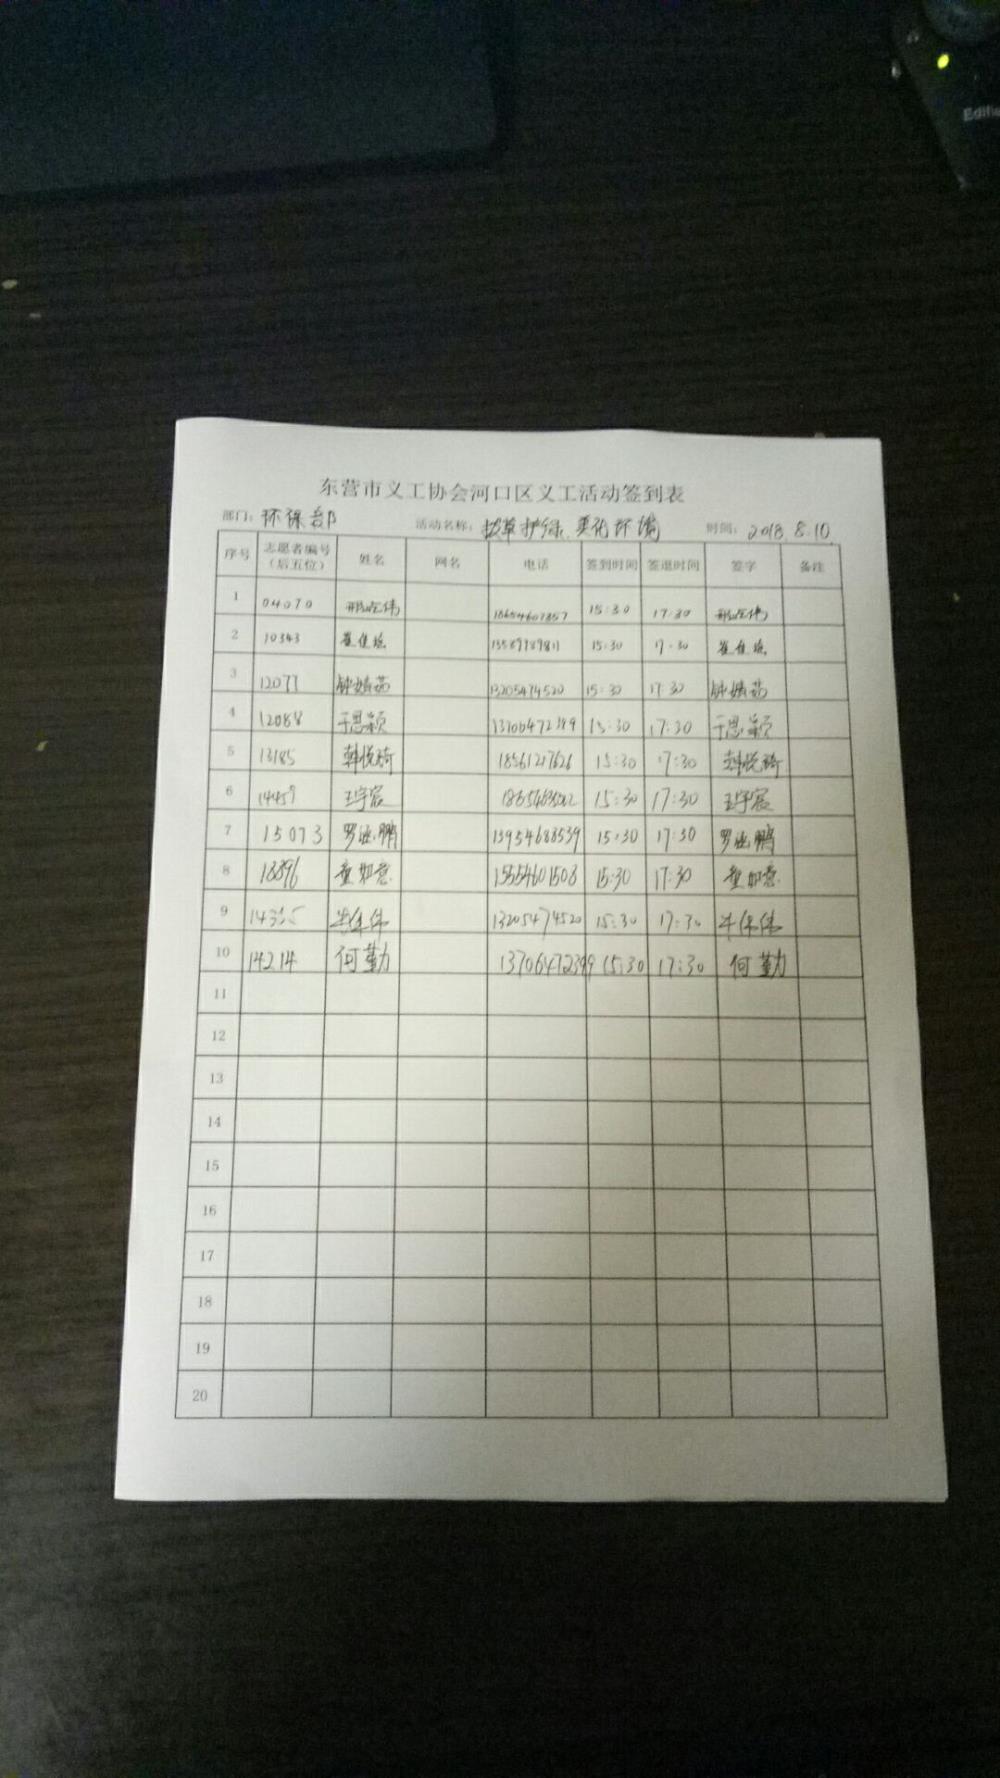 Edifie
东营市义工协会河口区义工活动签到表
部门：环保部 活动名称：拔草护绿、美化环境 时间：2018.8.10
序号 志愿者编号（后五位） 姓名 网名 电话 签到时间 签退时间 签字 备注
1 04070 18654607857 15:30 17:30
2 10343 15:30 17:30
3 13205474520 15:30 17:30
4 12088 于思颖 15:30 17:30 于思颖
5 13185 韩悦琦 18561217626 15:30 17:30 韩悦琦
6 14457 王宇宸 15:30 17:30 王宇宸
7 15073 13954688539 15:30 17:30
8 13896 童如意 15554601508 15:30 17:30 童如意
9 13205474520 15:30 17:30
10 14214 何勤 13706472399 15:30 17:30 何勤
11
12
13
14
15
16
17
18
19
20